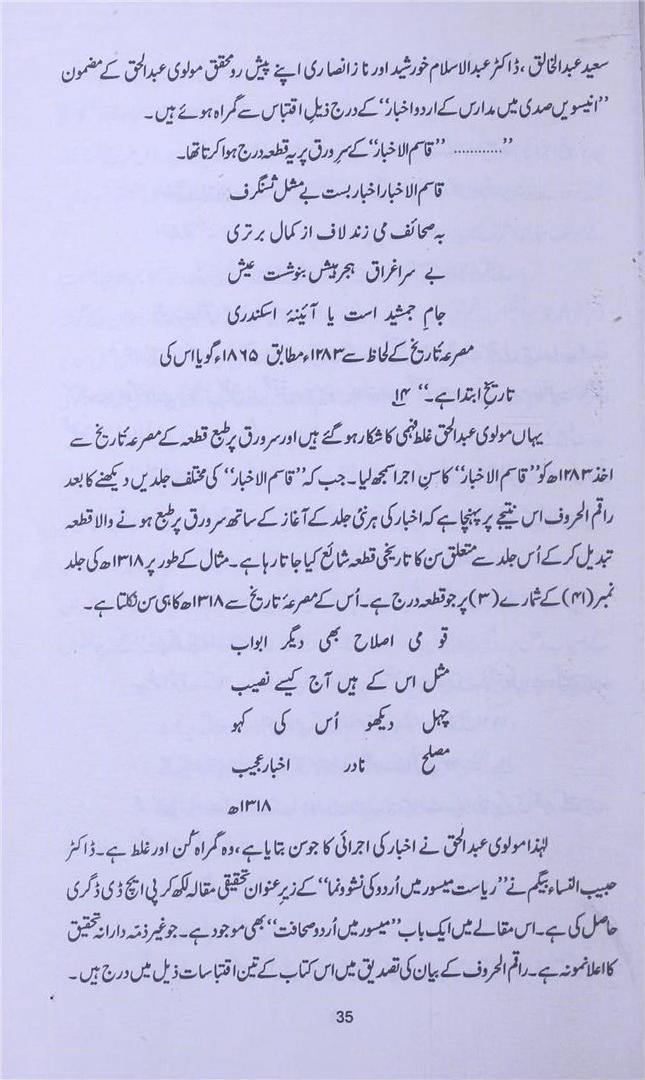 سعید عبدالخالق، ڈاکٹر عبدالاسلام خورشید اور ناز انصاری اپنے پیش رو محقق مولوی عبدالحق کے مضمون
"انیسویں صدی میں مدارس کے اردو اخبار" کے درج ذیل اقتباس سے گمراہ ہوئے ہیں۔
"............ "قاسم الاخبار" کے سرِ ورق پر یہ قطعہ درج ہوا کرتا تھا۔
قاسم الاخبار اخبار بست بے مثل شنگرف
بہ صحائف می زند لاف از کمال برتری
بے سراغراق ہجر ہیش بنوشت عیش
جامِ جمشید است یا آئینۂ اسکندری
مصرعۂ تاریخ کے لحاظ سے ۱۲۸۳ء مطابق ۱۸۶۵ء گویا اس کی
تاریخِ ابتدا ہے۔" ۱۴
یہاں مولوی عبدالحق غلط فہمی کا شکار ہو گئے ہیں اور سرورق پر طبع قطعہ کے مصرعۂ تاریخ سے
اخذ ۱۲۸۳ھ کو "قاسم الاخبار" کا سنِ اجرا سمجھ لیا۔ جب کہ "قاسم الاخبار" کی مختلف جلدیں دیکھنے کا بعد
راقم الحروف اس نتیجے پر پہنچا ہے کہ اخبار کی ہر نئی جلد کے آغاز کے ساتھ سرورق پر طبع ہونے والا قطعہ
تبدیل کر کے اُس جلد سے متعلق سن کا تاریخی قطعہ شائع کیا جاتا رہا ہے۔ مثال کے طور پر ۱۳۱۸ھ کی جلد
نمبر (۴۱) کے شمارے (۳) پر جو قطعہ درج ہے۔ اُس کے مصرعۂ تاریخ سے ۱۳۱۸ھ کا ہی سن نکلتا ہے۔
قومی اصلاح بھی دیگر ابواب
مثل اس کے ہیں آج کیسے نصیب
چہل دیکھو اُس کی کہو
مصلح نادر اخبار عجیب
۱۳۱۸ھ
لہٰذا مولوی عبدالحق نے اخبار کی اجرائی کا جو سن بتایا ہے، وہ گمراہ کُن اور غلط ہے۔ ڈاکٹر
حبیب النساء بیگم نے "ریاست میسور میں اُردو کی نشوونما" کے زیرِ عنوان تحقیقی مقالہ لکھ کر پی ایچ ڈی ڈگری
حاصل کی ہے۔ اس مقالے میں ایک باب "میسور میں اُردو صحافت" بھی موجود ہے۔ جو غیر ذمّہ دارانہ تحقیق
کا اعلا نمونہ ہے۔ راقم الحروف کے بیان کی تصدیق میں اس کتاب کے تین اقتباسات ذیل میں درج ہیں۔
35